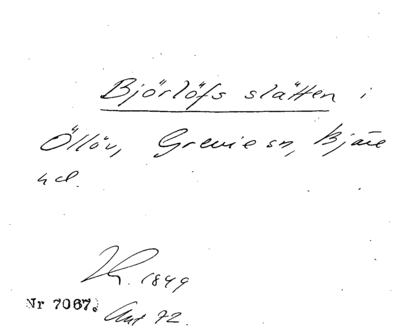 Björlöfs slätten i
Öllöv, Grevie sn, Bjäre
hd.
1849
Nr 7067. Ant 72.